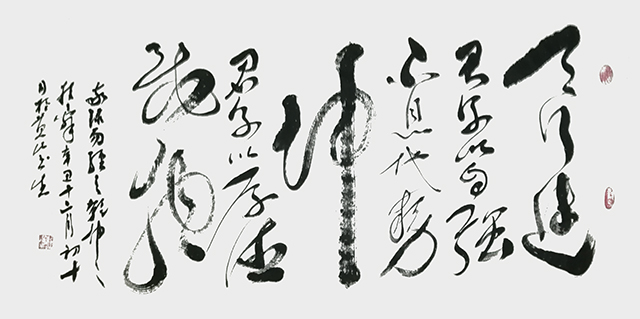 天行健
君子以自强
不息地势
坤
君子以厚德
载物
易经之乾坤
辛丑十二月初十
日于